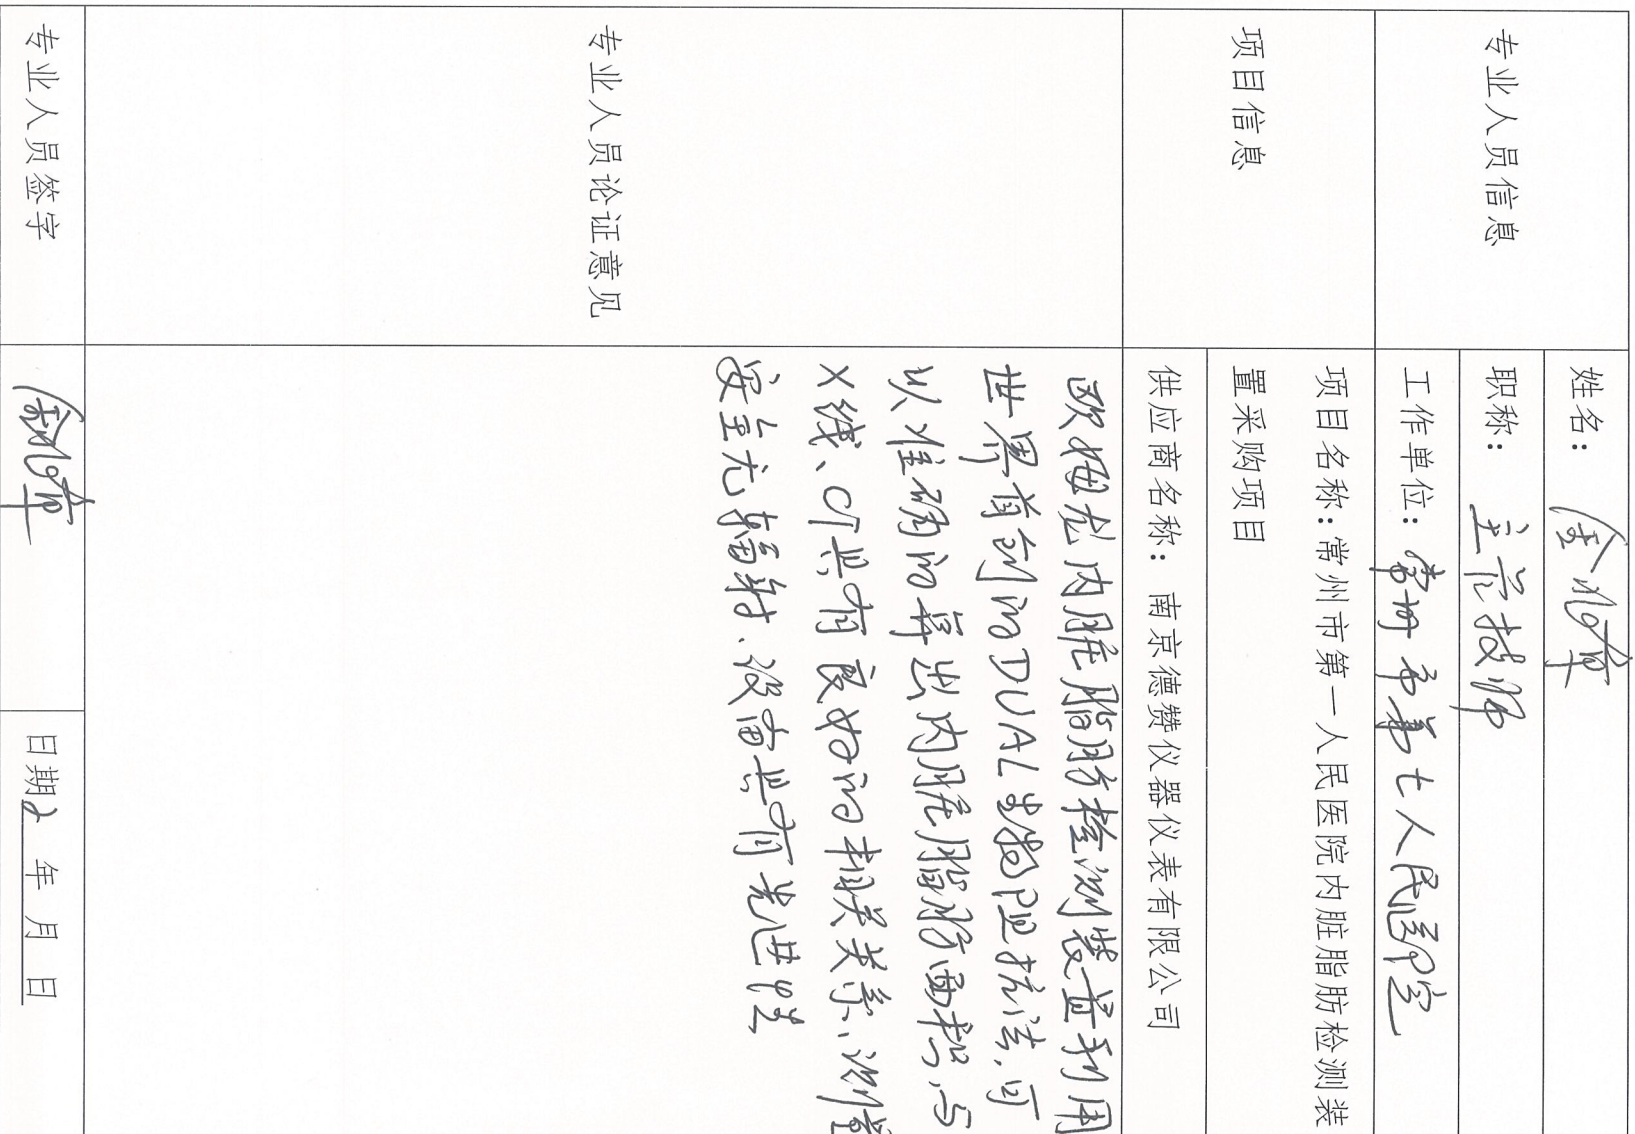 专业人员信息
姓名：金
职称：主管技师
工作单位：常州市第七人民医院
项目信息
项目名称：常州市第一人民医院内脏脂肪检测装
置采购项目
供应商名称：南京德赞仪器仪表有限公司
专业人员论证意见
欧姆龙内脏脂肪检测装置利用
世界首创的DUAL生物阻抗法,可
以准确的算出内脏脂肪面积,与
X线、CT具有良好的相关关系,测量
安全无辐射、设备具有先进性
专业人员签字
金
日期2 年 月 日